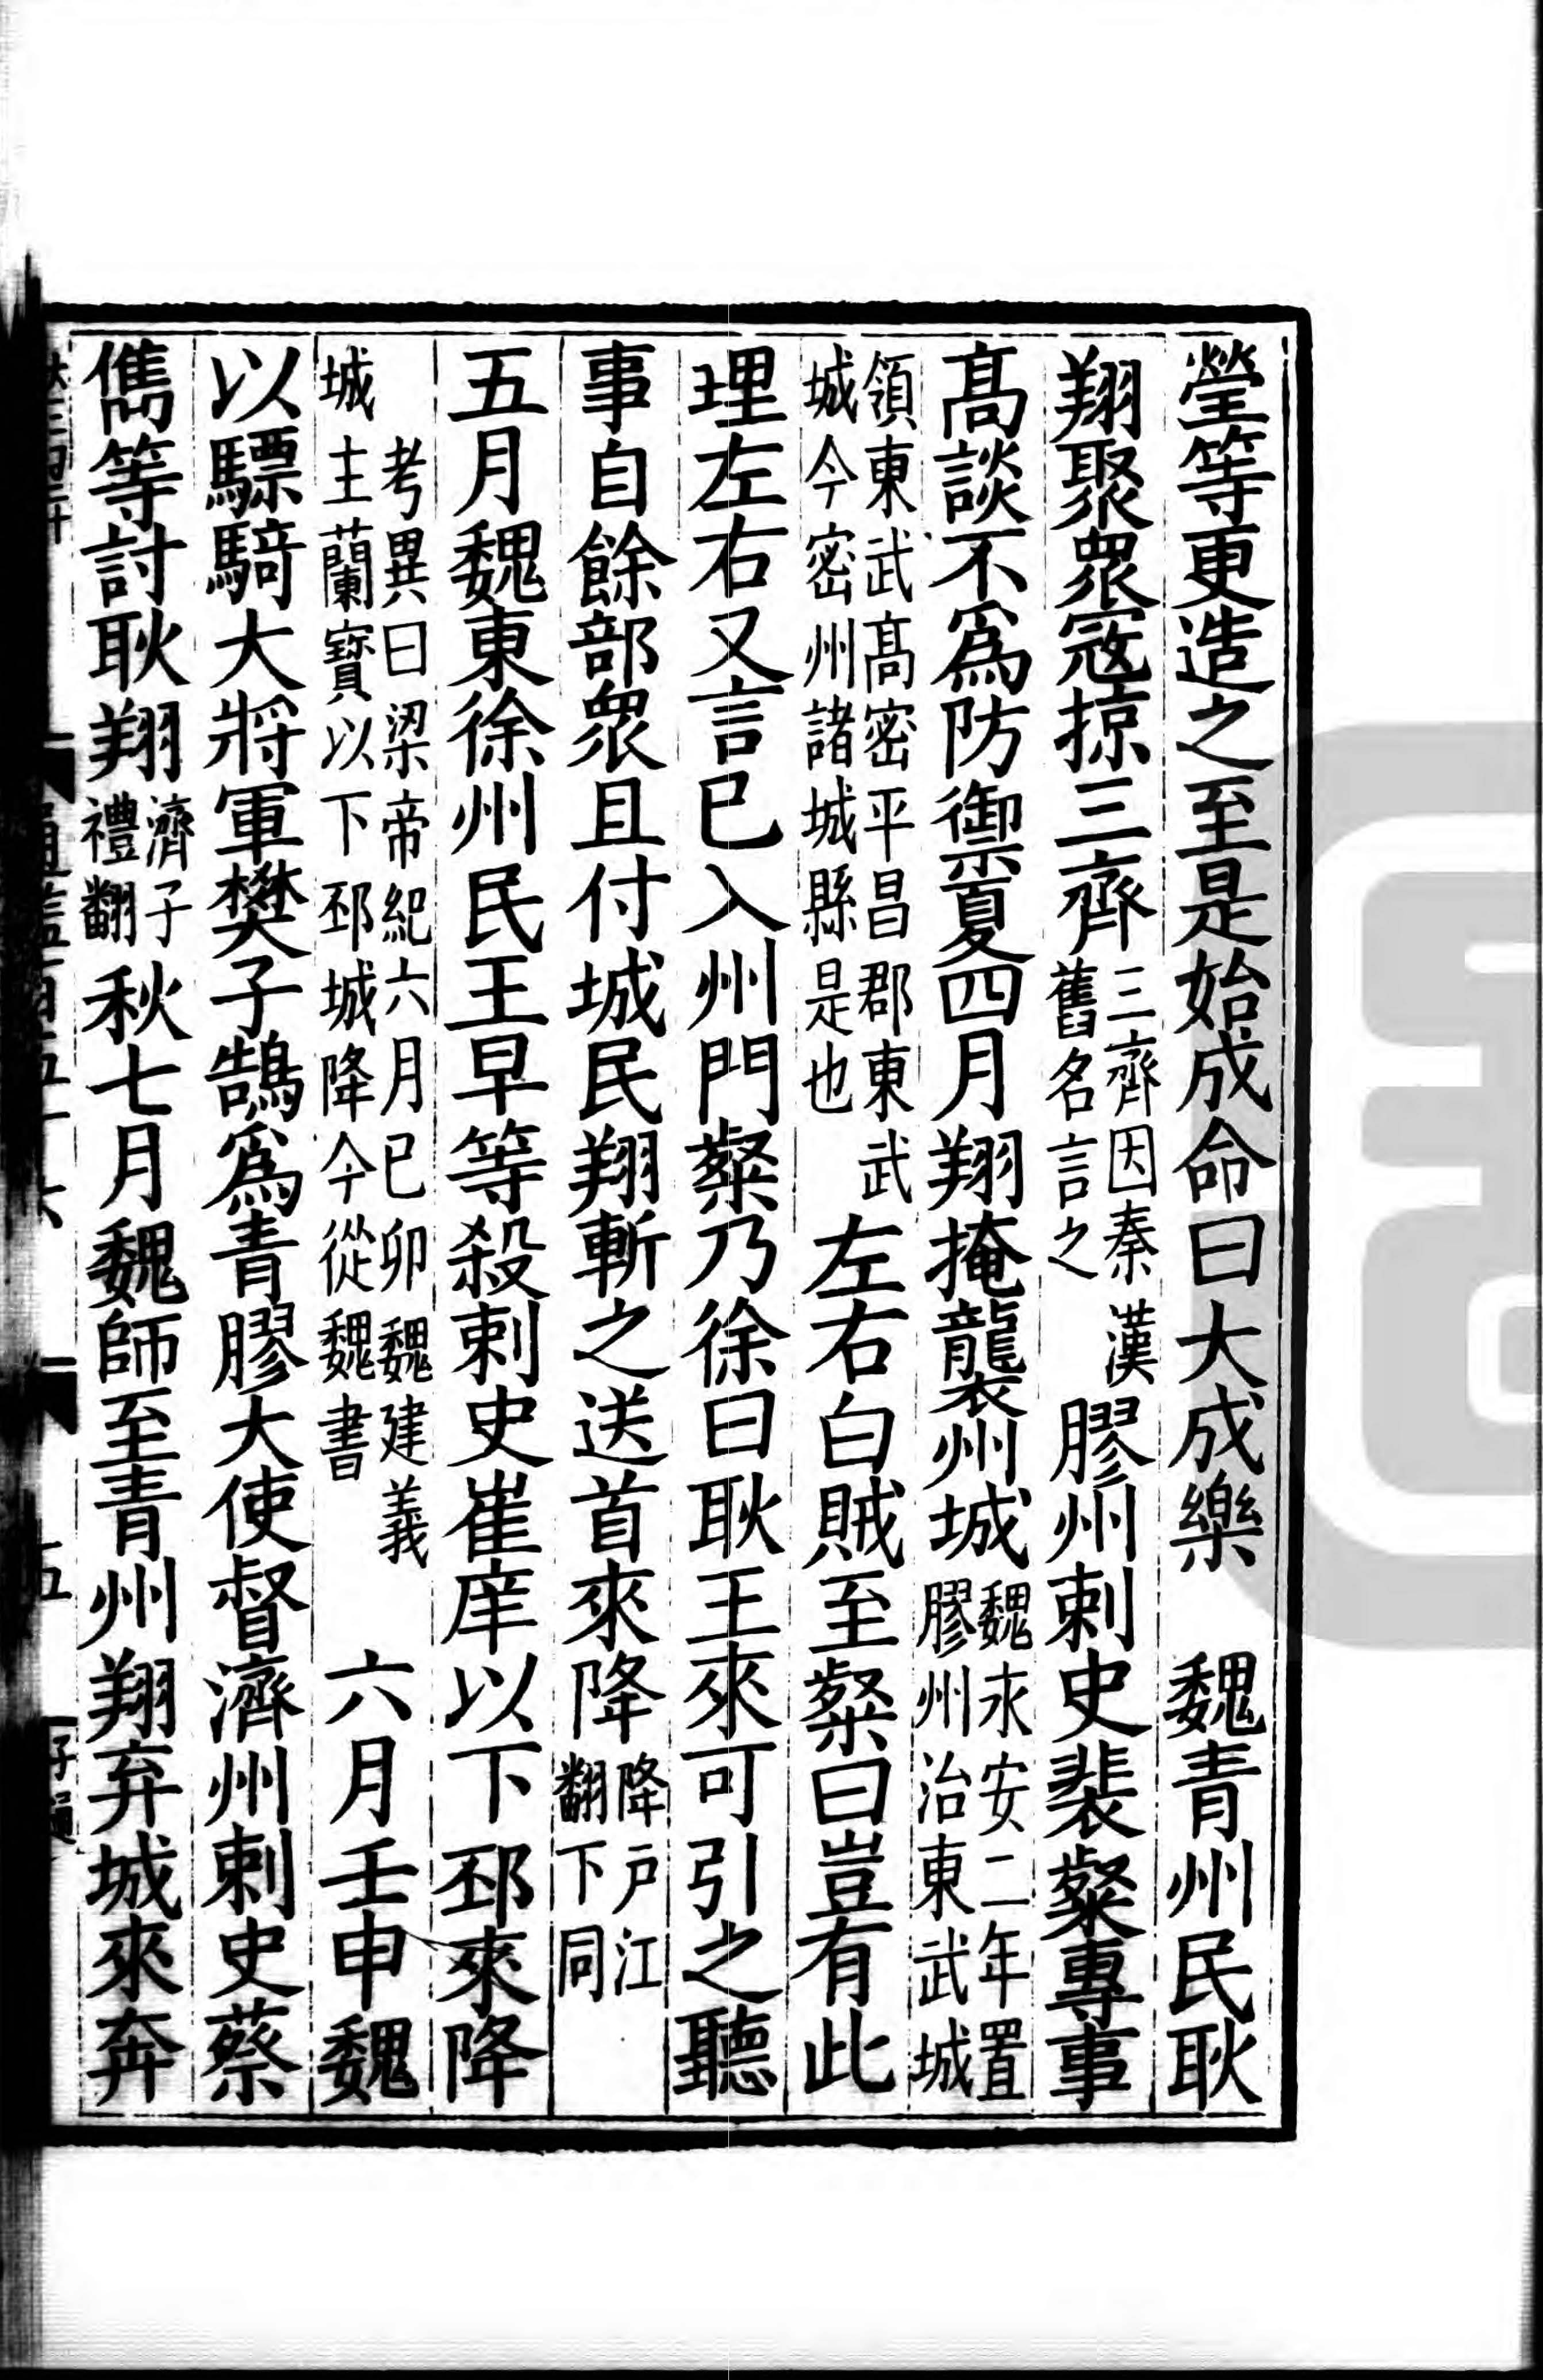 瑩等更造之至是始成命曰大成樂　魏青州民耿
翔聚衆寇掠三齊三齊因秦漢舊名言之膠州刺史裴粲專事
高談不爲防禦夏四月翔掩襲州城魏永安二年置膠州治東武城
領東武高密平昌郡東武城今密州諸城縣是也左右白賊至粲曰豈有此
理左右又言已入州門粲乃徐曰耿王來可引之聽
事自餘部衆且付城民翔斬之送首來降降戶江翻下同
五月魏東徐州民王早等殺刺史崔庠以下邳來降
考異曰梁帝紀六月已卯魏建義城主蘭寶以下邳城降今從魏書　六月壬申魏
以驃騎大將軍樊子鵠爲青膠大使督濟州刺史蔡
儁等討耿翔濟子禮翻秋七月魏師至青州翔弃城來奔